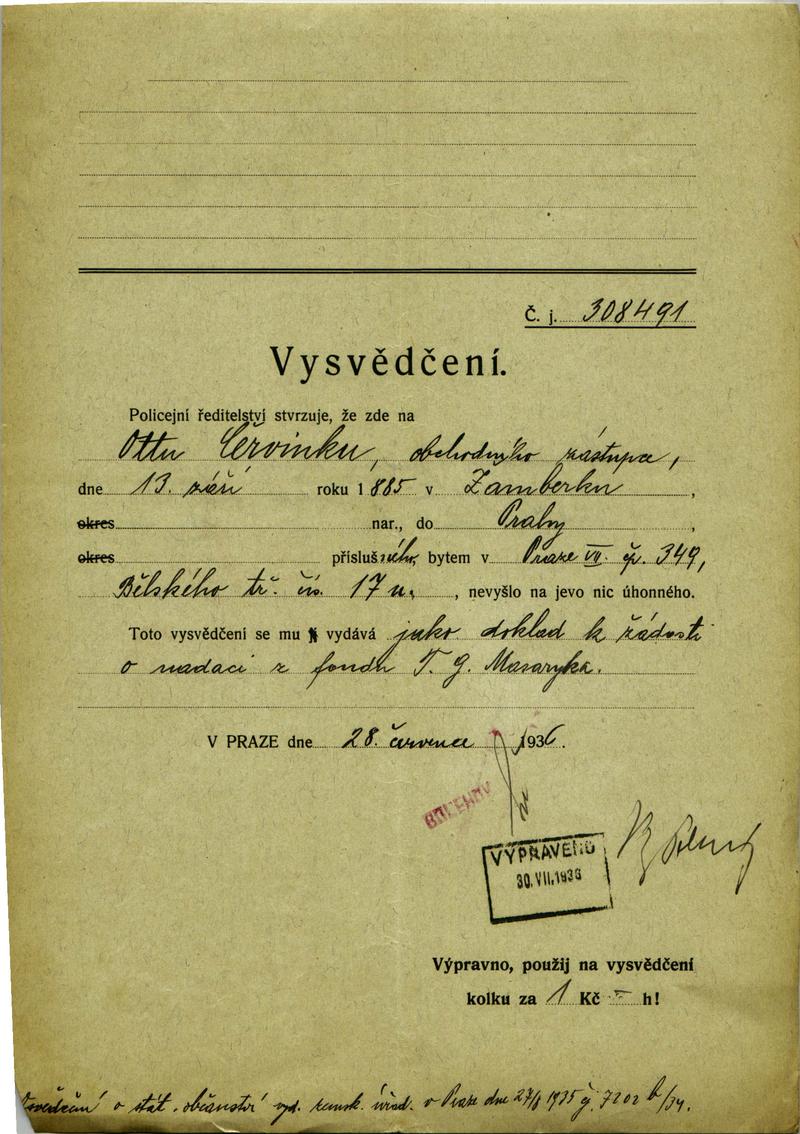 Č. j. 308491
Vysvědčení.
Policejní ředitelství stvrzuje, že zde na
Ottu Červinku, obchodního zástupce,
dne 13. září roku 1885 v Žamberku,
okres nar., do Prahy,
okres příslušného, bytem v Praze VII. čp. 349,
Bělského tř. čís. 17 n., nevyšlo na jevo nic úhonného.
Toto vysvědčení se mu vydává jako doklad k žádosti
o nadaci z fondu T. G. Masaryka.
V PRAZE dne 28. července 1936.
VÝPRAVENO
30.VII.1936
Výpravno, použij na vysvědčení
kolku za 1 Kč — h!
Osvědčení o stát. občanství vyd. zemsk. úřad. v Praze dne 27/8 1935 č. 7202 b/34.